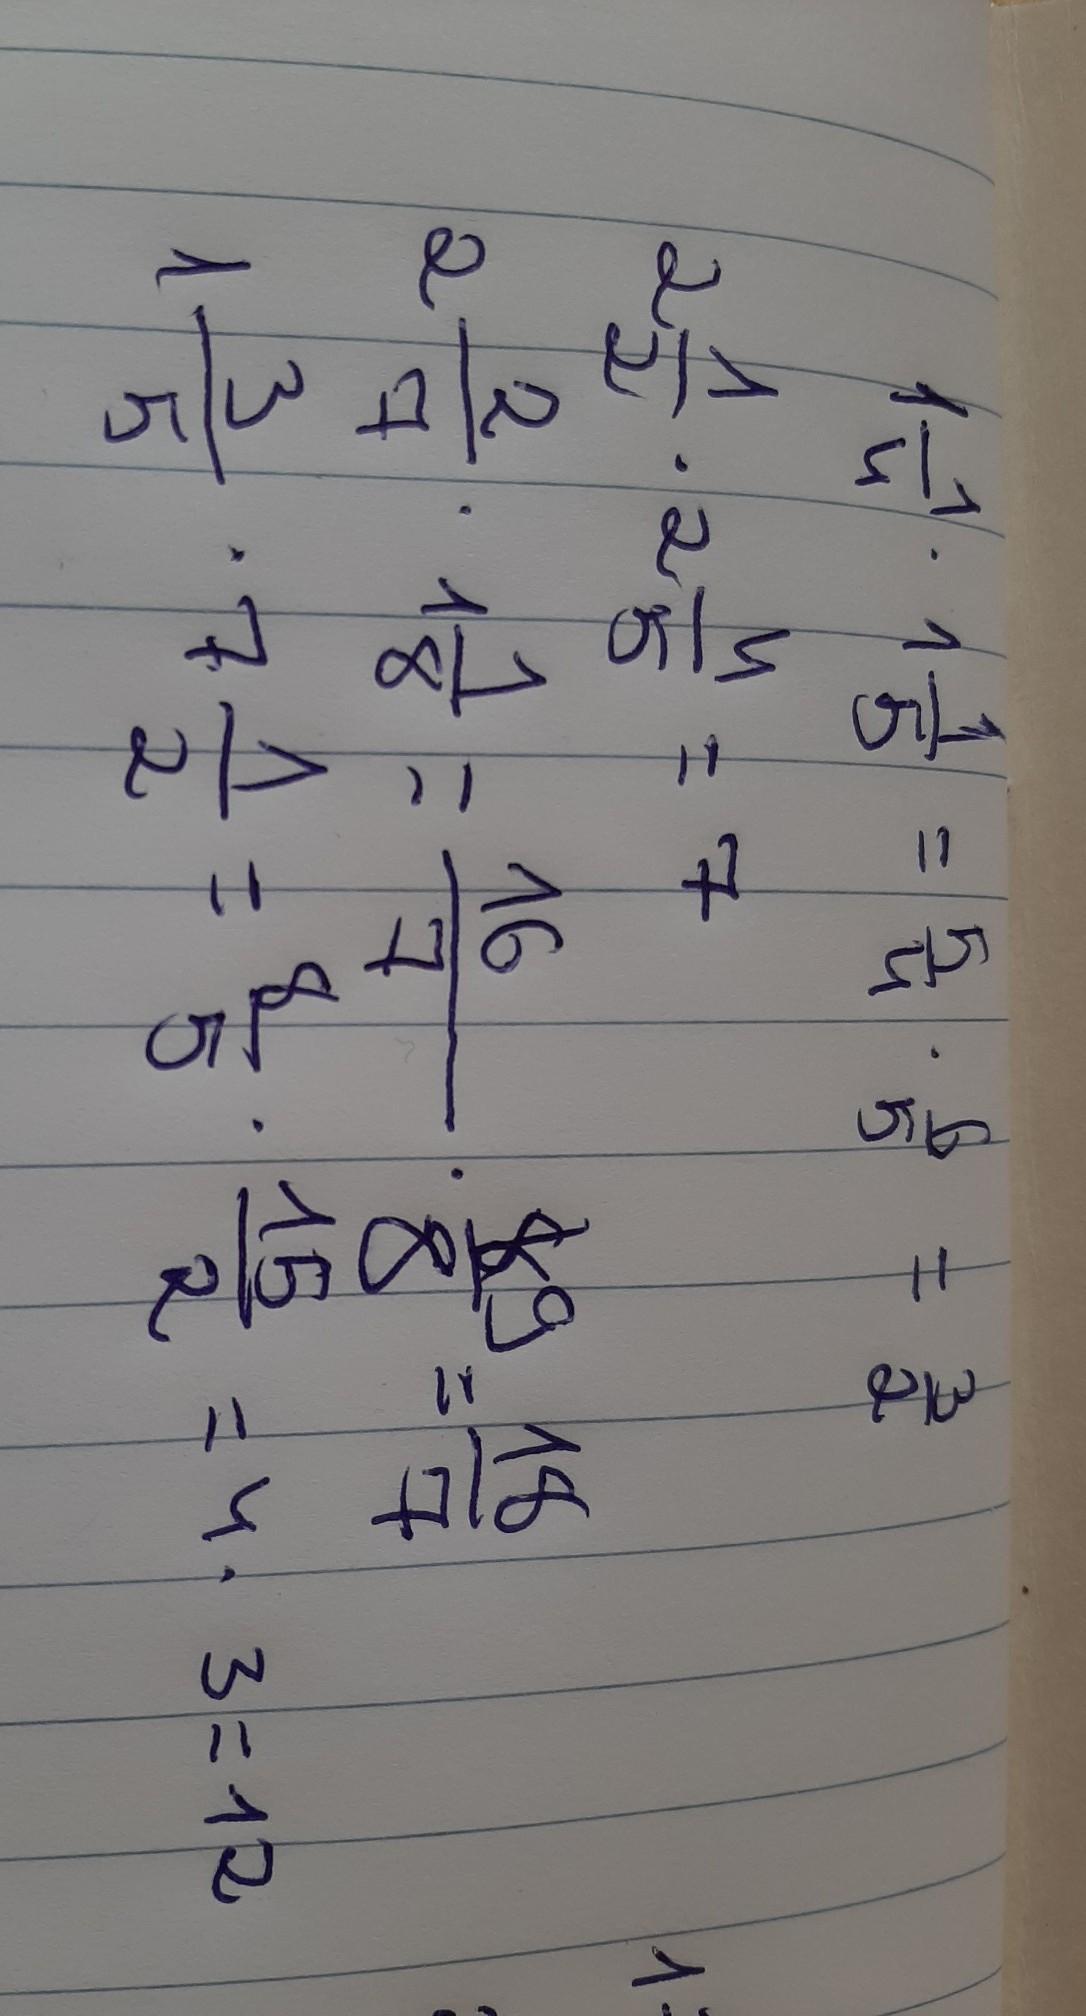 1 1/4 · 1 1/5 = 5/4 · 6/5 = 3/2
2 1/2 · 2 4/5 = 7
2 2/7 · 1 1/8 = 16/7 · 9/8 = 18/7
1 3/5 · 7 1/2 = 8/5 · 15/2 = 4 · 3 = 12